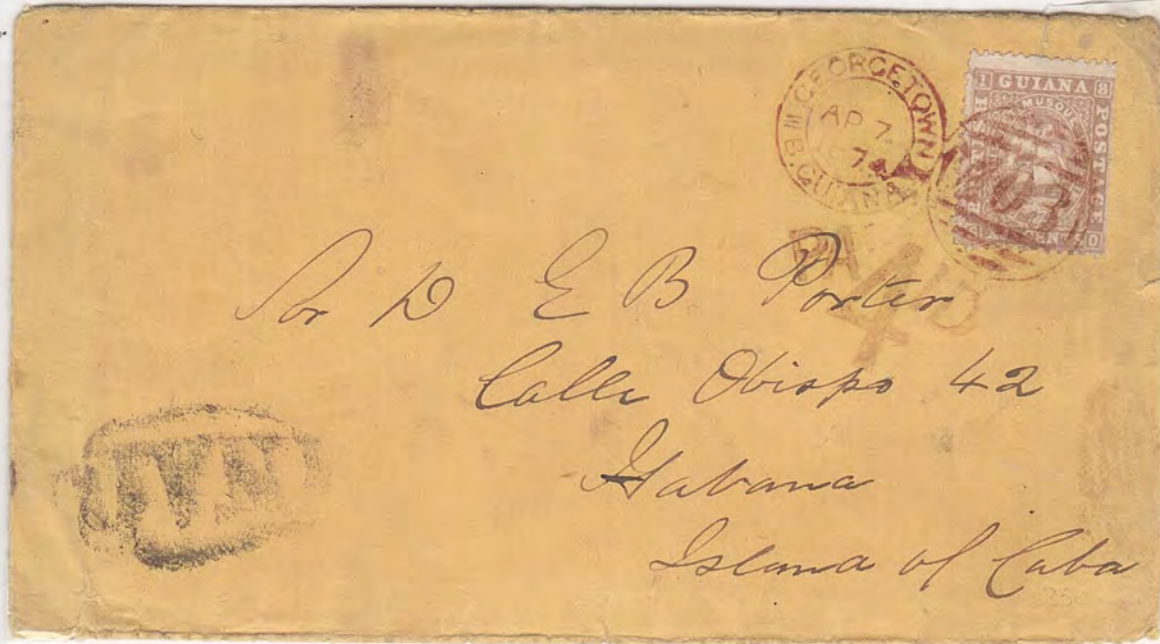 GEORGETOWN
AP 7
74
B. GUIANA
1 GUIANA 8
POSTAGE
PAID
4
Sor D E B Porter
Calle Obispo 42
Habana
Island of Cuba